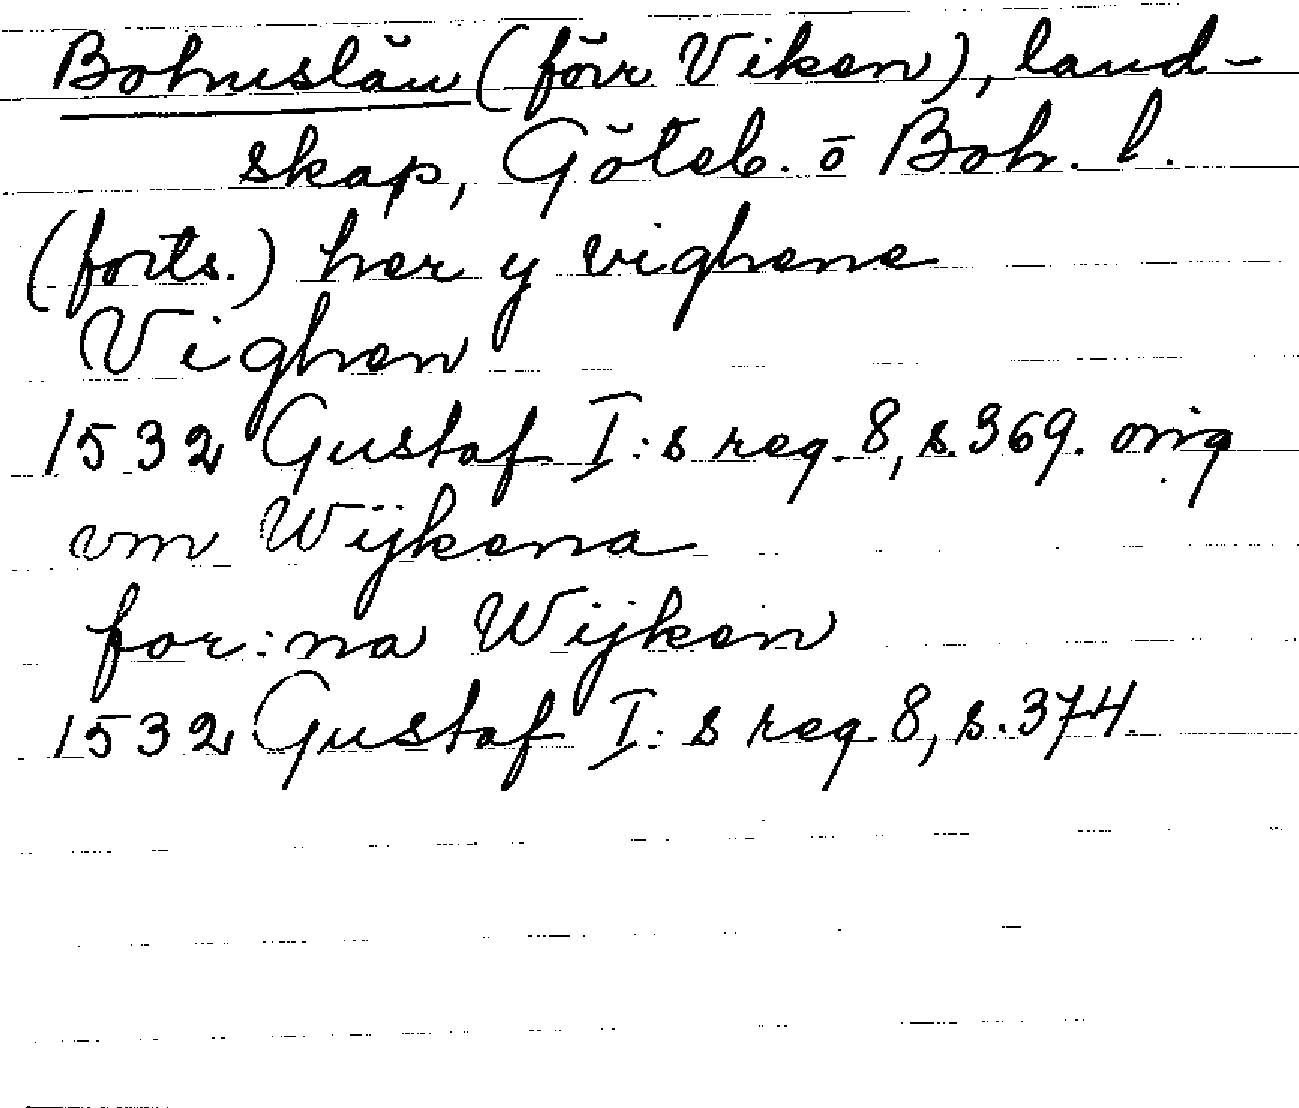 Bohuslän (förr Viken), land-
skap, Göteb. o Boh. l.
(forts.) her y vighene
Vighen
1532 Gustaf I:s reg. 8, s. 369. orig
vm Wijkena
for:na Wijken
1532 Gustaf I:s reg 8, s. 374.